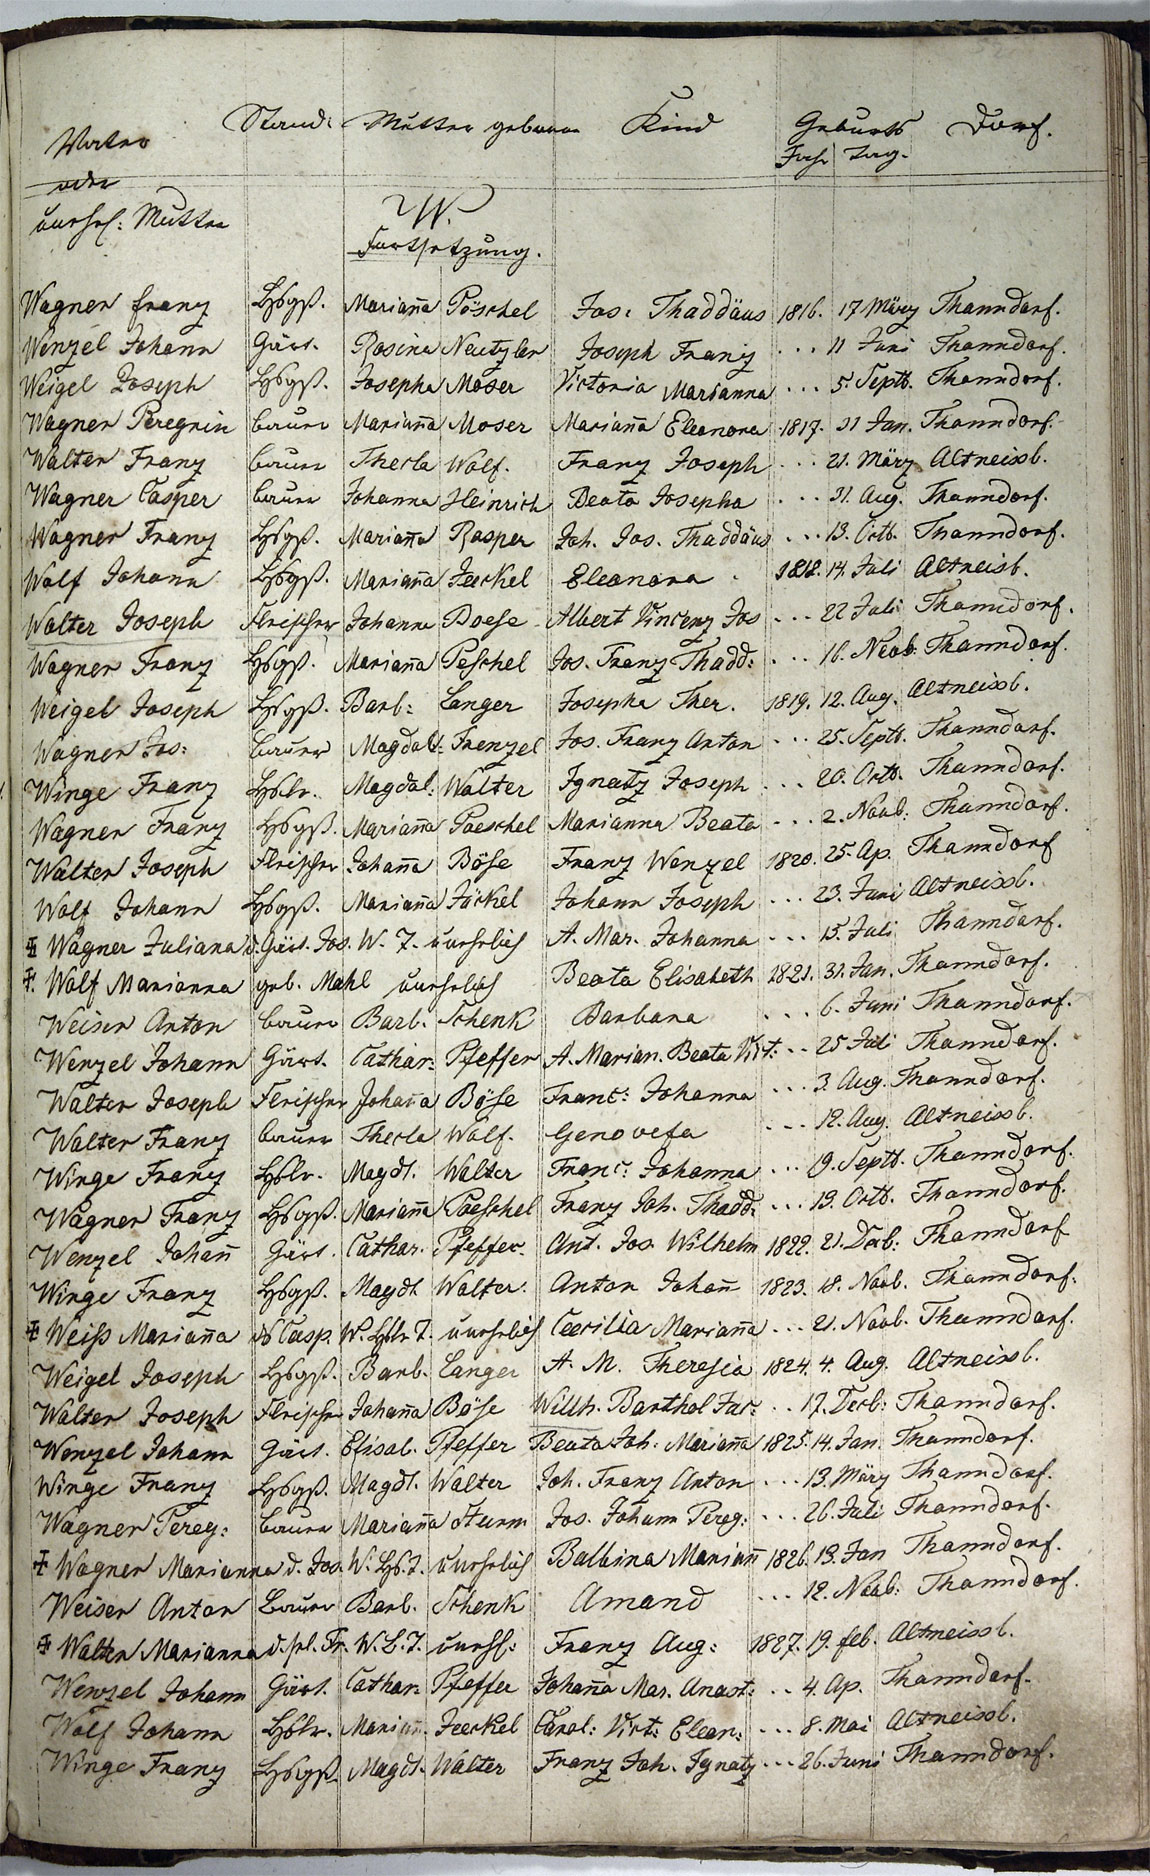 Vater Stand: Mutter geborne Kind Geburts Dorf.
oder Jahr Tag.
unehel: Mutter
W.
Fortsetzung.
Wagner Franz Hsbgß. Mariaña Pöschel Jos: Thaddäus 1816. 17 März Thanndorf.
Wenzel Johann Gärt. Rosina Neutzler Joseph Franz ... 11 Juni Thanndorf.
Weigel Joseph Hsbgß. Josepha Moser Victoria Marianna ... 5. Septb. Thanndorf.
Wagner Peregrin Bauer Mariañа Moser Mariañа Eleonora 1817. 31 Jan. Thanndorf.
Walter Franz Bauer Thecla Wolf. Franz Joseph ... 21. März Altneissb.
Wagner Casper Bauer Johanna Heinrich Beata Josepha ... 31. Aug. Thanndorf.
Wagner Franz Hsbgß. Mariañа Rasper Joh. Jos. Thaddäus ... 13. Octb. Thanndorf.
Wolf Johann Hsbgß. Mariañа Jeckel Eleonora 1818. 14. Juli Altneisb.
Walter Joseph Fleischer Johanna Boese Albert Vincenz Jos ... 22 Juli Thanndorf.
Wagner Franz Hsbgß. Mariañа Peschel Jos. Franz Thadd: ... 16. Novb. Thanndorf.
Weigel Joseph Hsbgß. Barb: Langer Josepha Ther. 1819. 12. Aug. Altneissb.
Wagner Jos: Bauer Magdal: Frenzel Jos. Franz Anton ... 25. Septb. Thanndorf.
Winge Franz Hsblr. Magdal: Walter Ignatz Joseph ... 20. Octb. Thanndorf.
Wagner Franz Hsbgß. Mariañа Poeschel Marianna Beata ... 2. Novb: Thanndorf.
Walter Joseph Fleischer Johañа Böse Franz Wenzel 1820. 25. Ap. Thanndorf
Wolf Johann Hsbgß. Mariañа Jäckel Johann Joseph ... 23. Juni Altneissb.
Wagner Juliana d. Gärt. Jos. W. T. unehelich A. Mar. Johanna ... 15. Juli Thanndorf.
Wolf Marianna geb. Mahl unehelich Beata Elisabeth 1821. 31. Jan. Thanndorf.
Weiser Anton Bauer Barb. Schenk Barbara ... 6. Juni Thanndorf.
Wenzel Johann Gärt. Cathar: Pfeffer A. Marian. Beata Vict: .. 25 Juli Thanndorf.
Walter Joseph Fleischer Johañа Böse Franc: Johanna ... 3. Aug. Thanndorf.
Walter Franz Bauer Thecla Wolf. Genovefa ... 12. Aug. Altneissb.
Winge Franz Hsblr. Magdl. Walter Franc. Johanna ... 19. Septb. Thanndorf.
Wagner Franz Hsbgß. Mariañа Poeschel Franz Joh. Thadd. ... 13. Octb. Thanndorf.
Wenzel Johañ Gärt. Cathar. Pfeffer. Ant. Jos. Wilhelm 1822. 21. Decb: Thanndorf
Winge Franz Hsbgß. Magdl. Walter. Anton Johañ 1823. 18. Novb. Thanndorf.
Weiss Mariañа ds Casp. W. Hsblr T. unehelich Caecilia Mariañа ... 21. Novb. Thanndorf.
Weigel Joseph Hsbgß. Barb. Langer A. M. Theresia 1824. 4. Aug. Altneissb.
Walter Joseph Fleischer Johañа Böse Willh. Barthol Jac: .. 17. Decb: Thanndorf.
Wenzel Johann Gärt. Elisab. Pfeffer Beata Joh. Mariañа 1825. 14. Jan. Thanndorf.
Winge Franz Hsbgß. Magdl. Walter Joh. Franz Anton ... 13. März Thanndorf.
Wagner Pereg: Bauer Mariañа Sturm Jos. Johann Pereg: ... 26. Juli Thanndorf.
Wagner Marianna d. Jos. W. Hs. T. unehelich Balbina Mariañ 1826. 13. Jan Thanndorf.
Weiser Anton Bauer Barb. Schenk Amand ... 12. Novb: Thanndorf.
Walter Marianna d. sel. Fr. W. B. T. unehl: Franz Aug: 1827. 19. Feb. Altneissb.
Wenzel Johann Gärt. Cathar: Pfeffer Johañа Mar. Anast: .. 4. Ap. Thanndorf.
Wolf Johann Hsblr. Mariañ. Jeckel Carol: Vict: Eleon: ... 8. Mai Altneissb.
Winge Franz Hsbgß. Magdl. Walter Franz Joh. Ignatz ... 26. Juni Thanndorf.